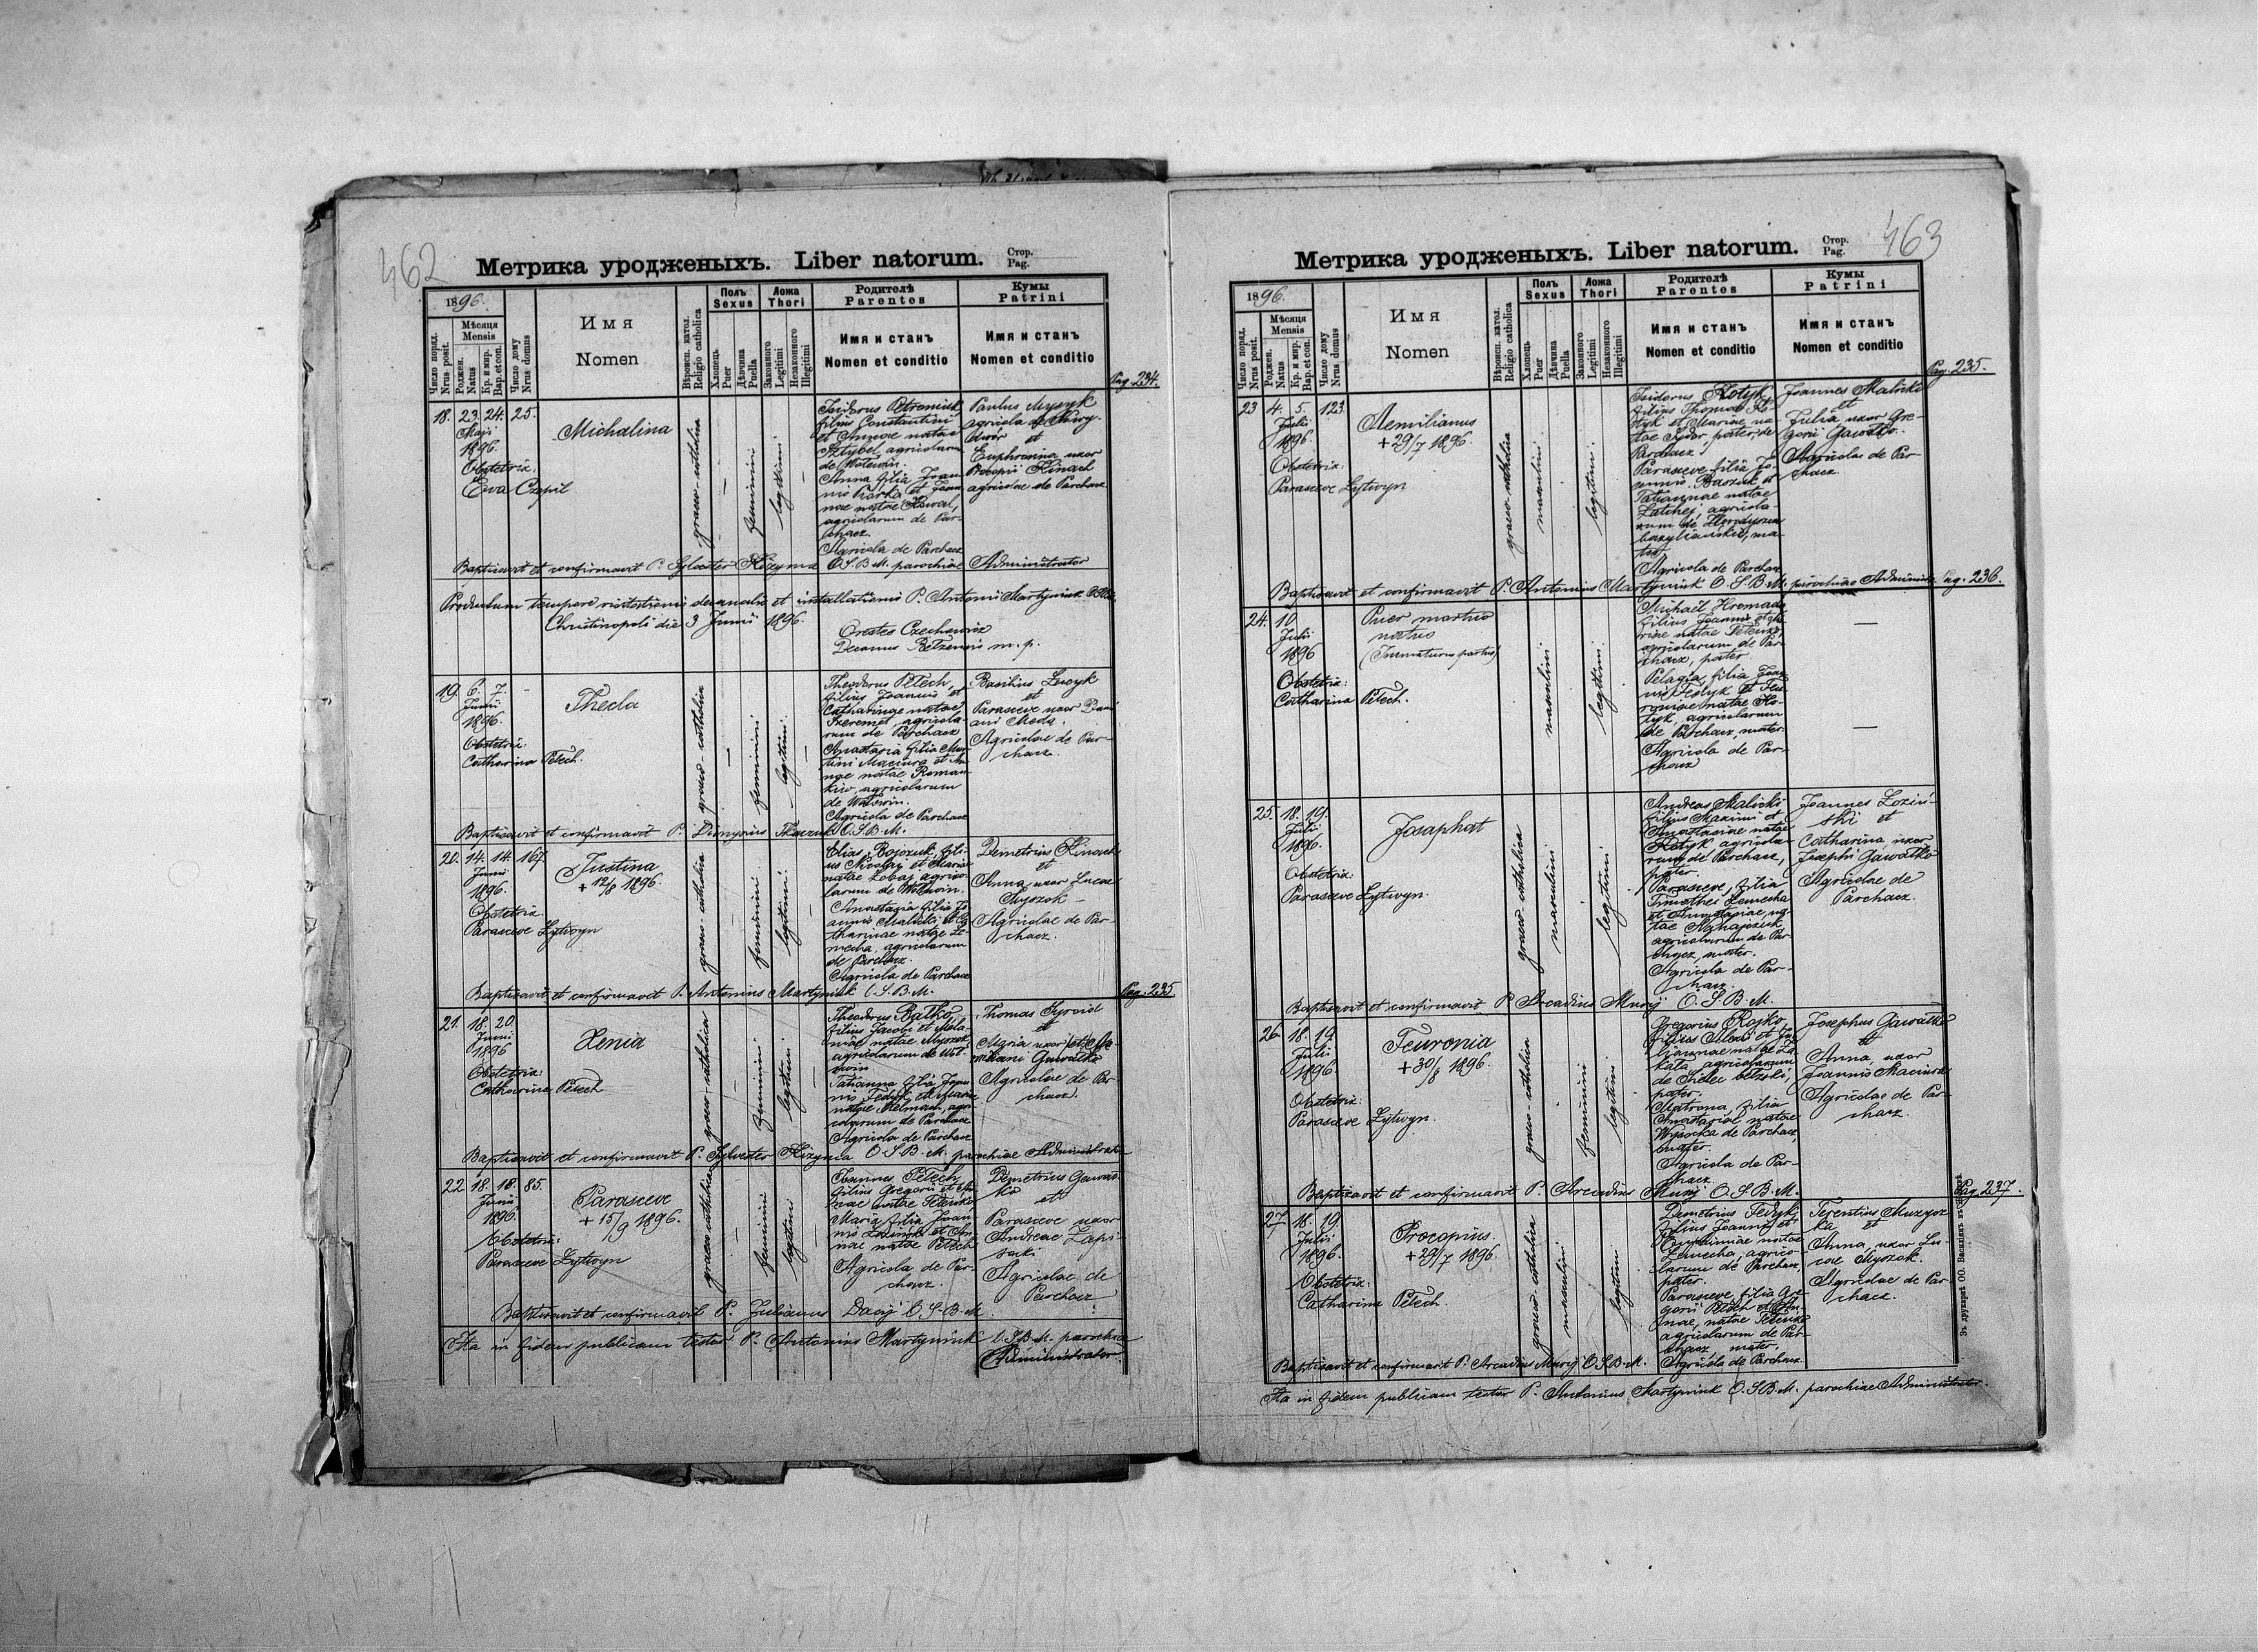 462
Метрика уродженыхъ. Liber natorum.
Стор.
Pag.
1896.
Число поряд.
Nrus posit.
Мѣсяця
Mensis
Рожден.
Natus
Кр. и мир.
Bap. et con.
Число дому
Nrus domus
Имя
Nomen
Вѣроисп. катол.
Religio catholica
Полъ
Sexus
Хлопець
Puer
Дѣвчина
Puella
Ложа
Thori
Законного
Legitimi
Незаконного
Illegitimi
Родителѣ
Parentes
Имя и станъ
Nomen et conditio
Кумы
Patrini
Имя и станъ
Nomen et conditio
Pag. 234.
18. 23. 24. 25.
Maji
1896.
Obstetrix:
Eva Czepil
Michalina
graeco-catholica
feminini
legitimi
Isidorus Petroniuk
filius Constantini
et Annae natae
Sztybel, agricolarum
de Wolswin.
Anna filia Joan-
nis Piorka et Joan-
nae natae Kowal,
agricolarum de Par-
chacz.
Agricola de Parchacz
Paulus Mysyk
agricola de Nowy-
dwór et
Euphrosina uxor
Procopii Kinach
agricolae de Parchacz
Baptisavit et confirmavit P. Sylvester Kizyma O.S.B.M. parochiae Administrator
Productum tempore visitationis decanalis et installationis P. Antonii Martyniuk
Christinopoli die 3 Junii 1896.
Orestes Czechowicz
Decanus Belzensis m. p.
19. 6. 7. -
Junii
1896.
Obstetrix:
Catharina Petech.
Thecla
graeco-catholica
feminini
legitimi
Theodorus Petech,
filius Joannis et
Catharinae natae
Szeremet, agricola-
rum de Parchacz
Anastasia filia Mar-
tini Maciura et An-
nae natae Roman-
kiw, agricolarum
de Wolswin.
Agricola de Parchacz
Basilius Lewyk
et
Parasceve uxor Dami-
ani Medis.
Agricolae de Par-
chacz.
Baptisavit et confirmavit P. Dionysius Tkaczuk O.S.B.M.
20. 14. 14. 167
Junii
1896.
Obstetrix:
Parasceve Lytwyn
Justina
+ 12/8 1896.
graeco-catholica
feminini
legitimi
Elias Bojczuk, fili-
us Nicolai et Mariae
natae Lobaj, agrico-
larum de Wolswin.
Anastasia filia Jo-
annis Malicki et Ca-
tharinae natae Le-
mecha, agricolarum
de Parchacz.
Agricola de Parchacz
Demetrius Kinach
et
Anna uxor Lucae
Myszok
Agricolae de Par-
chacz.
Baptisavit et confirmavit P. Antonius Martyniuk O.S.B.M.
Pag. 235
21. 18. 20.
Junii
1896
Obstetrix:
Catharina Petech
Xenia
graeco-catholica
feminini
legitimi
Theodorus Balko,
filius Jacobi et Mela-
niae natae Myszok,
agricolarum de Wol-
swin.
Tatianna filia Joan-
nis Fedyk et Mariae
natae Melmach, agri-
colarum de Parchacz
Agricola de Parchacz
Thomas Syroid
et
Maria uxor
Gawalko
Agricolae de Par-
chacz.
Baptisavit et confirmavit P. Sylvester Kizyma O.S.B.M. parochiae Administrator
22. 18. 18. 85.
Junii
1896.
Obstetrix:
Parasceve Lytwyn
Parasceve
+ 15/9 1896.
graeco-catholica
feminini
legitimi
Joannes Petech,
filius Gregorii et An-
nae natae Petenko
Maria filia Joan-
nis Lozinski et An-
nae natae Petech
Agricola de Par-
chacz.
Demetrius Gawal-
ko
et
Parasceve uxor
Andreae Zapi-
socki
Agricolae de
Parchacz
Baptisavit et confirmavit P. Julianus Dacij O.S.B.M.
Ita in fidem publicam testor P. Antonius Martyniuk O.S.B.M. parochiae
Administrator
463
Метрика уродженыхъ. Liber natorum.
Стор.
Pag.
1896.
Число поряд.
Nrus posit.
Мѣсяця
Mensis
Рожден.
Natus
Кр. и мир.
Bap. et con.
Число дому
Nrus domus
Имя
Nomen
Вѣроисп. катол.
Religio catholica
Полъ
Sexus
Хлопець
Puer
Дѣвчина
Puella
Ложа
Thori
Законного
Legitimi
Незаконного
Illegitimi
Родителѣ
Parentes
Имя и станъ
Nomen et conditio
Кумы
Patrini
Имя и станъ
Nomen et conditio
Pag. 235.
23 4. 5. 123.
Julii
1896.
Obstetrix:
Parasceve Lytwyn
Aemilianus
+ 29/7 1896.
graeco-catholica
masculini
legitimi
Isidorus Kotyk,
filius Thomae Ko-
tyk et Mariae na-
tae Sydor, pater, de
Parchacz
Parasceve filia Jo-
annis Baszuk et
Tatiannae natae
Zatchej, agricola-
rum de Horodyszcze
bazyliańskie, ma-
ter.
Agricola de Parchacz
Joannes Malicki
et
Julia uxor Gre-
gorii Gawalko.
Agricolae de Par-
chacz.
Baptisavit et confirmavit P. Antonius Martyniuk O.S.B.M. parochiae Administr.
Pag. 236.
24. 10
Julii
1896
Obstetrix:
Catharina Petech.
Puer mortuo
natus
(Immaturus partus)
masculini
legitimi
Michaël Hromada
filius Joannis et Ma-
riae natae Petenko,
agricolarum de Par-
chacz, pater
Pelagia filia Joan-
nis Fedyk et Feu-
roniae natae Ko-
tyk, agricolarum
de Parchacz, mater
Agricola de Par-
chacz
25. 18. 19.
Julii
1896.
Obstetrix:
Parasceve Lytwyn.
Josaphat
graeco-catholica
masculini
legitimi
Andreas Malicki
filius Maximi et
Anastasiae natae
Kotyk agricola-
rum de Parchacz,
pater.
Parasceve, filia
Timothei Lemecha
et Anastasiae na-
tae
agricolarum de Par-
chacz, mater.
Agricola de Par-
chacz.
Joannes Loziń-
ski et
Catharina, uxor
Josephi Gawalko
Agricolae de
Parchacz.
Baptisavit et confirmavit P. Arcadius Muryj O.S.B.M.
26. 18. 19.
Julii
1896.
Obstetrix:
Parasceve Lytwyn.
Feuronia
+ 30/8 1896.
graeco-catholica
feminini
legitimi
Gregorius Rojko
filius Eliae et Ju-
liannae natae
agricolarum
de Sielec belzski,
pater.
Matrona, filia
Anastasiae natae
Wysocka de Parchacz,
mater.
Agricola de Par-
chacz.
Josephus Gawalko
et
Anna, uxor
Joannis Maciura
Agricolae de Par-
chacz.
Baptisavit et confirmavit P. Arcadius Muryj O.S.B.M.
Pag. 237.
27. 18. 19.
Julii
1896.
Obstetrix:
Catharina Petech.
Procopius.
+ 29/7 1896.
graeco-catholica
masculini
legitimi
Demetrius Fedyk,
filius Joannis et
Euphimiae natae
Lemecha, agrico-
larum de Parchacz,
pater.
Parasceve filia Gre-
gorii Petech et An-
nae, natae Petenko
agricolarum de Par-
chacz, mater.
Agricola de Parchacz
Terentius Muzycz-
ka et
Anna, uxor Lu-
cae Myszok.
Agricolae de Par-
chacz.
Baptisavit et confirmavit P. Arcadius Muryj O.S.B.M.
Ita in fidem publicam testor P. Antonius Martyniuk O.S.B.M. parochiae Administrator.
Зъ друкарнѣ ОО. Василіянъ въ